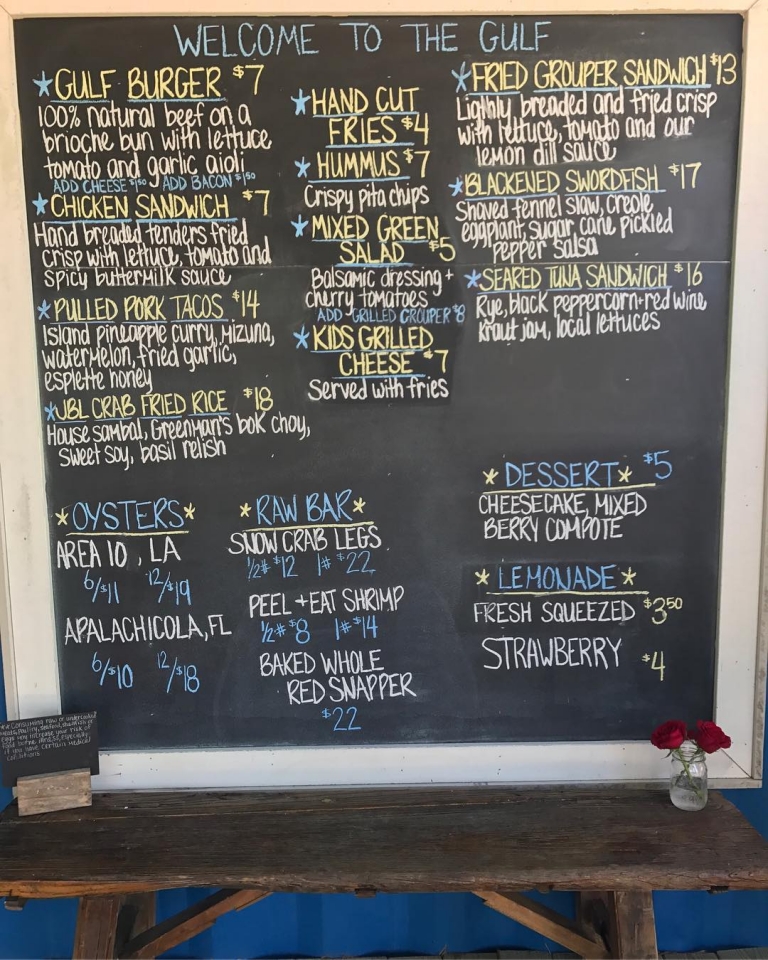 WELCOME TO THE GULF
*GULF BURGER $7
100% natural beef on a
brioche bun with lettuce
tomato and garlic aioli
ADD CHEESE $1.50 ADD BACON $1.50
*CHICKEN SANDWICH $7
Hand breaded tenders fried
crisp with lettuce, tomato and
spicy buttermilk sauce
*PULLED PORK TACOS $14
Island pineapple curry, Mizuna,
watermelon, fried garlic,
esplette honey
*JBL CRAB FRIED RICE $18
House sambal, Greenman's bok choy,
sweet soy, basil relish
*HAND CUT
FRIES $4
*HUMMUS $7
Crispy pita chips
*MIXED GREEN
SALAD $5
Balsamic dressing +
cherry tomatoes
ADD GRILLED GROUPER $8
*KIDS GRILLED
CHEESE $7
Served with fries
*FRIED GROUPER SANDWICH $13
Lighly breaded and fried crisp
with lettuce, tomato and our
lemon dill sauce
*BLACKENED SWORDFISH $17
Shaved fennel slaw, creole
eggplant, sugar cane pickled
pepper salsa
*SEARED TUNA SANDWICH $16
Rye, black peppercorn+red wine,
kraut jam, local lettuces
*OYSTERS*
AREA 10, LA
6/$11 12/$19
APALACHICOLA, FL
6/$10 12/$18
*RAW BAR*
SNOW CRAB LEGS
1/2# $12 1# $22
PEEL+EAT SHRIMP
1/2# $8 1# $14
BAKED WHOLE
RED SNAPPER
$22
*DESSERT* $5
CHEESECAKE, MIXED
BERRY COMPOTE
*LEMONADE*
FRESH SQUEEZED $3.50
STRAWBERRY $4
Consuming raw or undercooked
meats, poultry, seafood, shellfish or
eggs may increase your risk of
food borne illness, especially
if you have certain medical
conditions